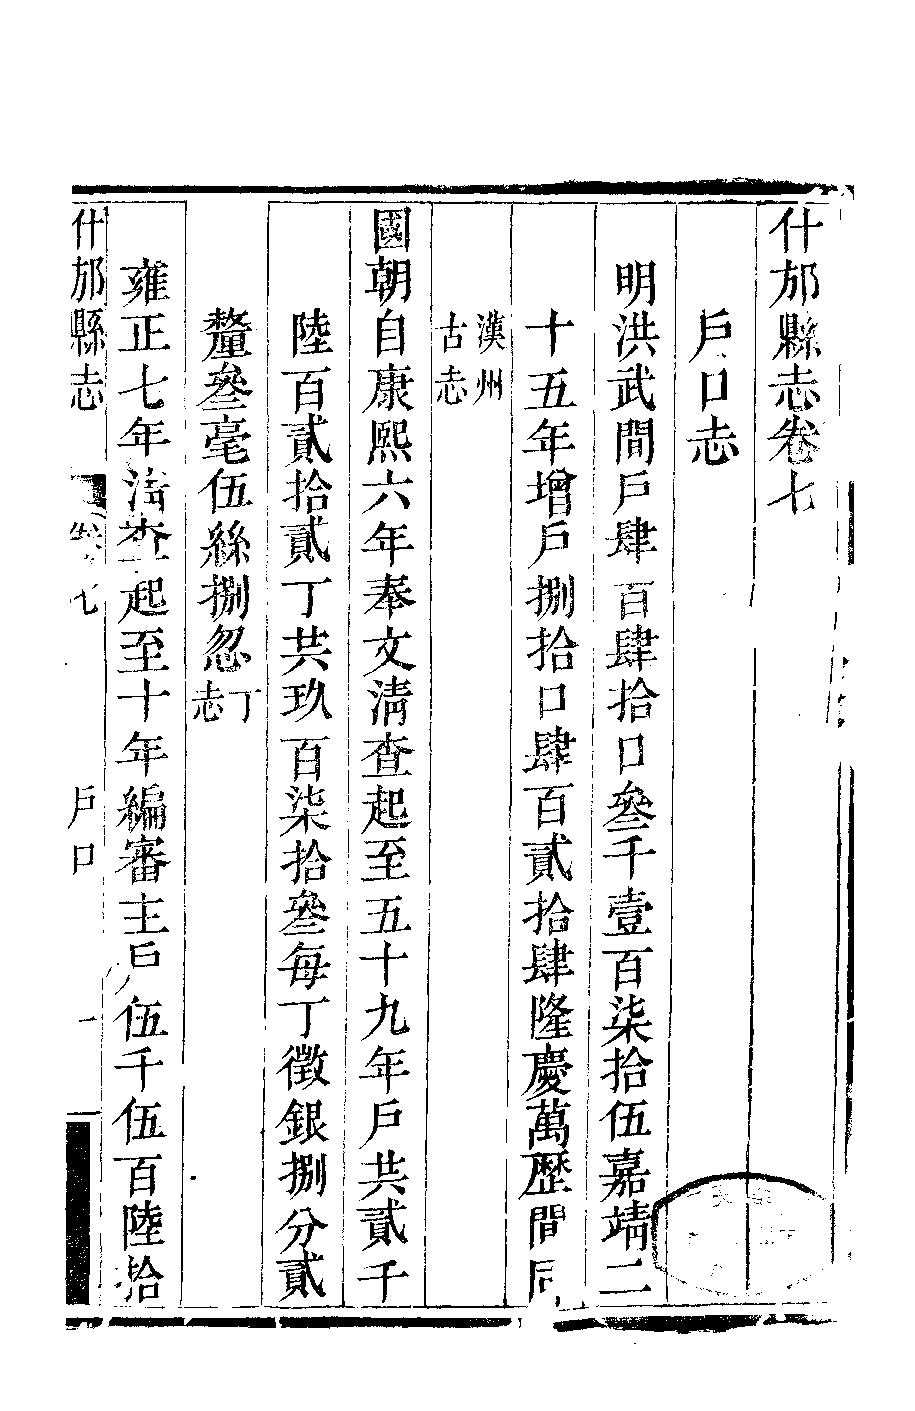 什邡縣志卷七
戶口志
明洪武間戶肆百肆拾口叄千壹百柒拾伍嘉靖二
十五年增戶捌拾口肆百貳拾肆隆慶萬歷間同
漢州
古志
國朝自康熙六年奉文淸查起至五十九年戶共貳千
陸百貳拾貳丁共玖百柒拾叄每丁徵銀捌分貳
釐叄毫伍絲捌忽丁
志
雍正七年淸查起至十年編審主戶伍千伍百陸拾
什邡縣志 卷七 戶口 一